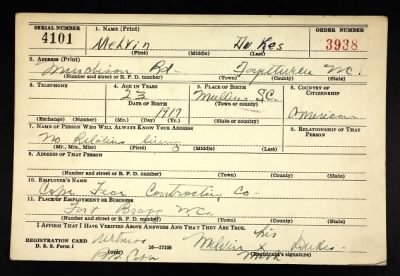 SERIAL NUMBER 1. NAME (Print) ORDER NUMBER
4101 Melvin Dukes 3938
(First) (Middle) (Last)
2. ADDRESS (Print)
Murchison Rd. Fayetteville N.C.
(Number and street or R. F. D. number) (Town) (County) (State)
3. TELEPHONE 4. AGE IN YEARS 5. PLACE OF BIRTH 6. COUNTRY OF CITIZENSHIP
Mullins S.C.
DATE OF BIRTH (Town or county) American
1917
(Exchange) (Number) (Mo.) (Day) (Yr.) (State or country)
7. NAME OF PERSON WHO WILL ALWAYS KNOW YOUR ADDRESS 8. RELATIONSHIP OF THAT PERSON
No Relatives living
(Mr., Mrs., Miss) (First) (Middle) (Last)
9. ADDRESS OF THAT PERSON
(Number and street or R. F. D. number) (Town) (County) (State)
10. EMPLOYER'S NAME
Cape Fear Contracting Co-
11. PLACE OF EMPLOYMENT OR BUSINESS
Fort Bragg N.C.
(Number and street or R. F. D. number) (Town) (County) (State)
I AFFIRM THAT I HAVE VERIFIED ABOVE ANSWERS AND THAT THEY ARE TRUE.
his
REGISTRATION CARD Witness Melvin x Dukes
D. S. S. Form 1 16-17105 (Registrant's signature)
mark